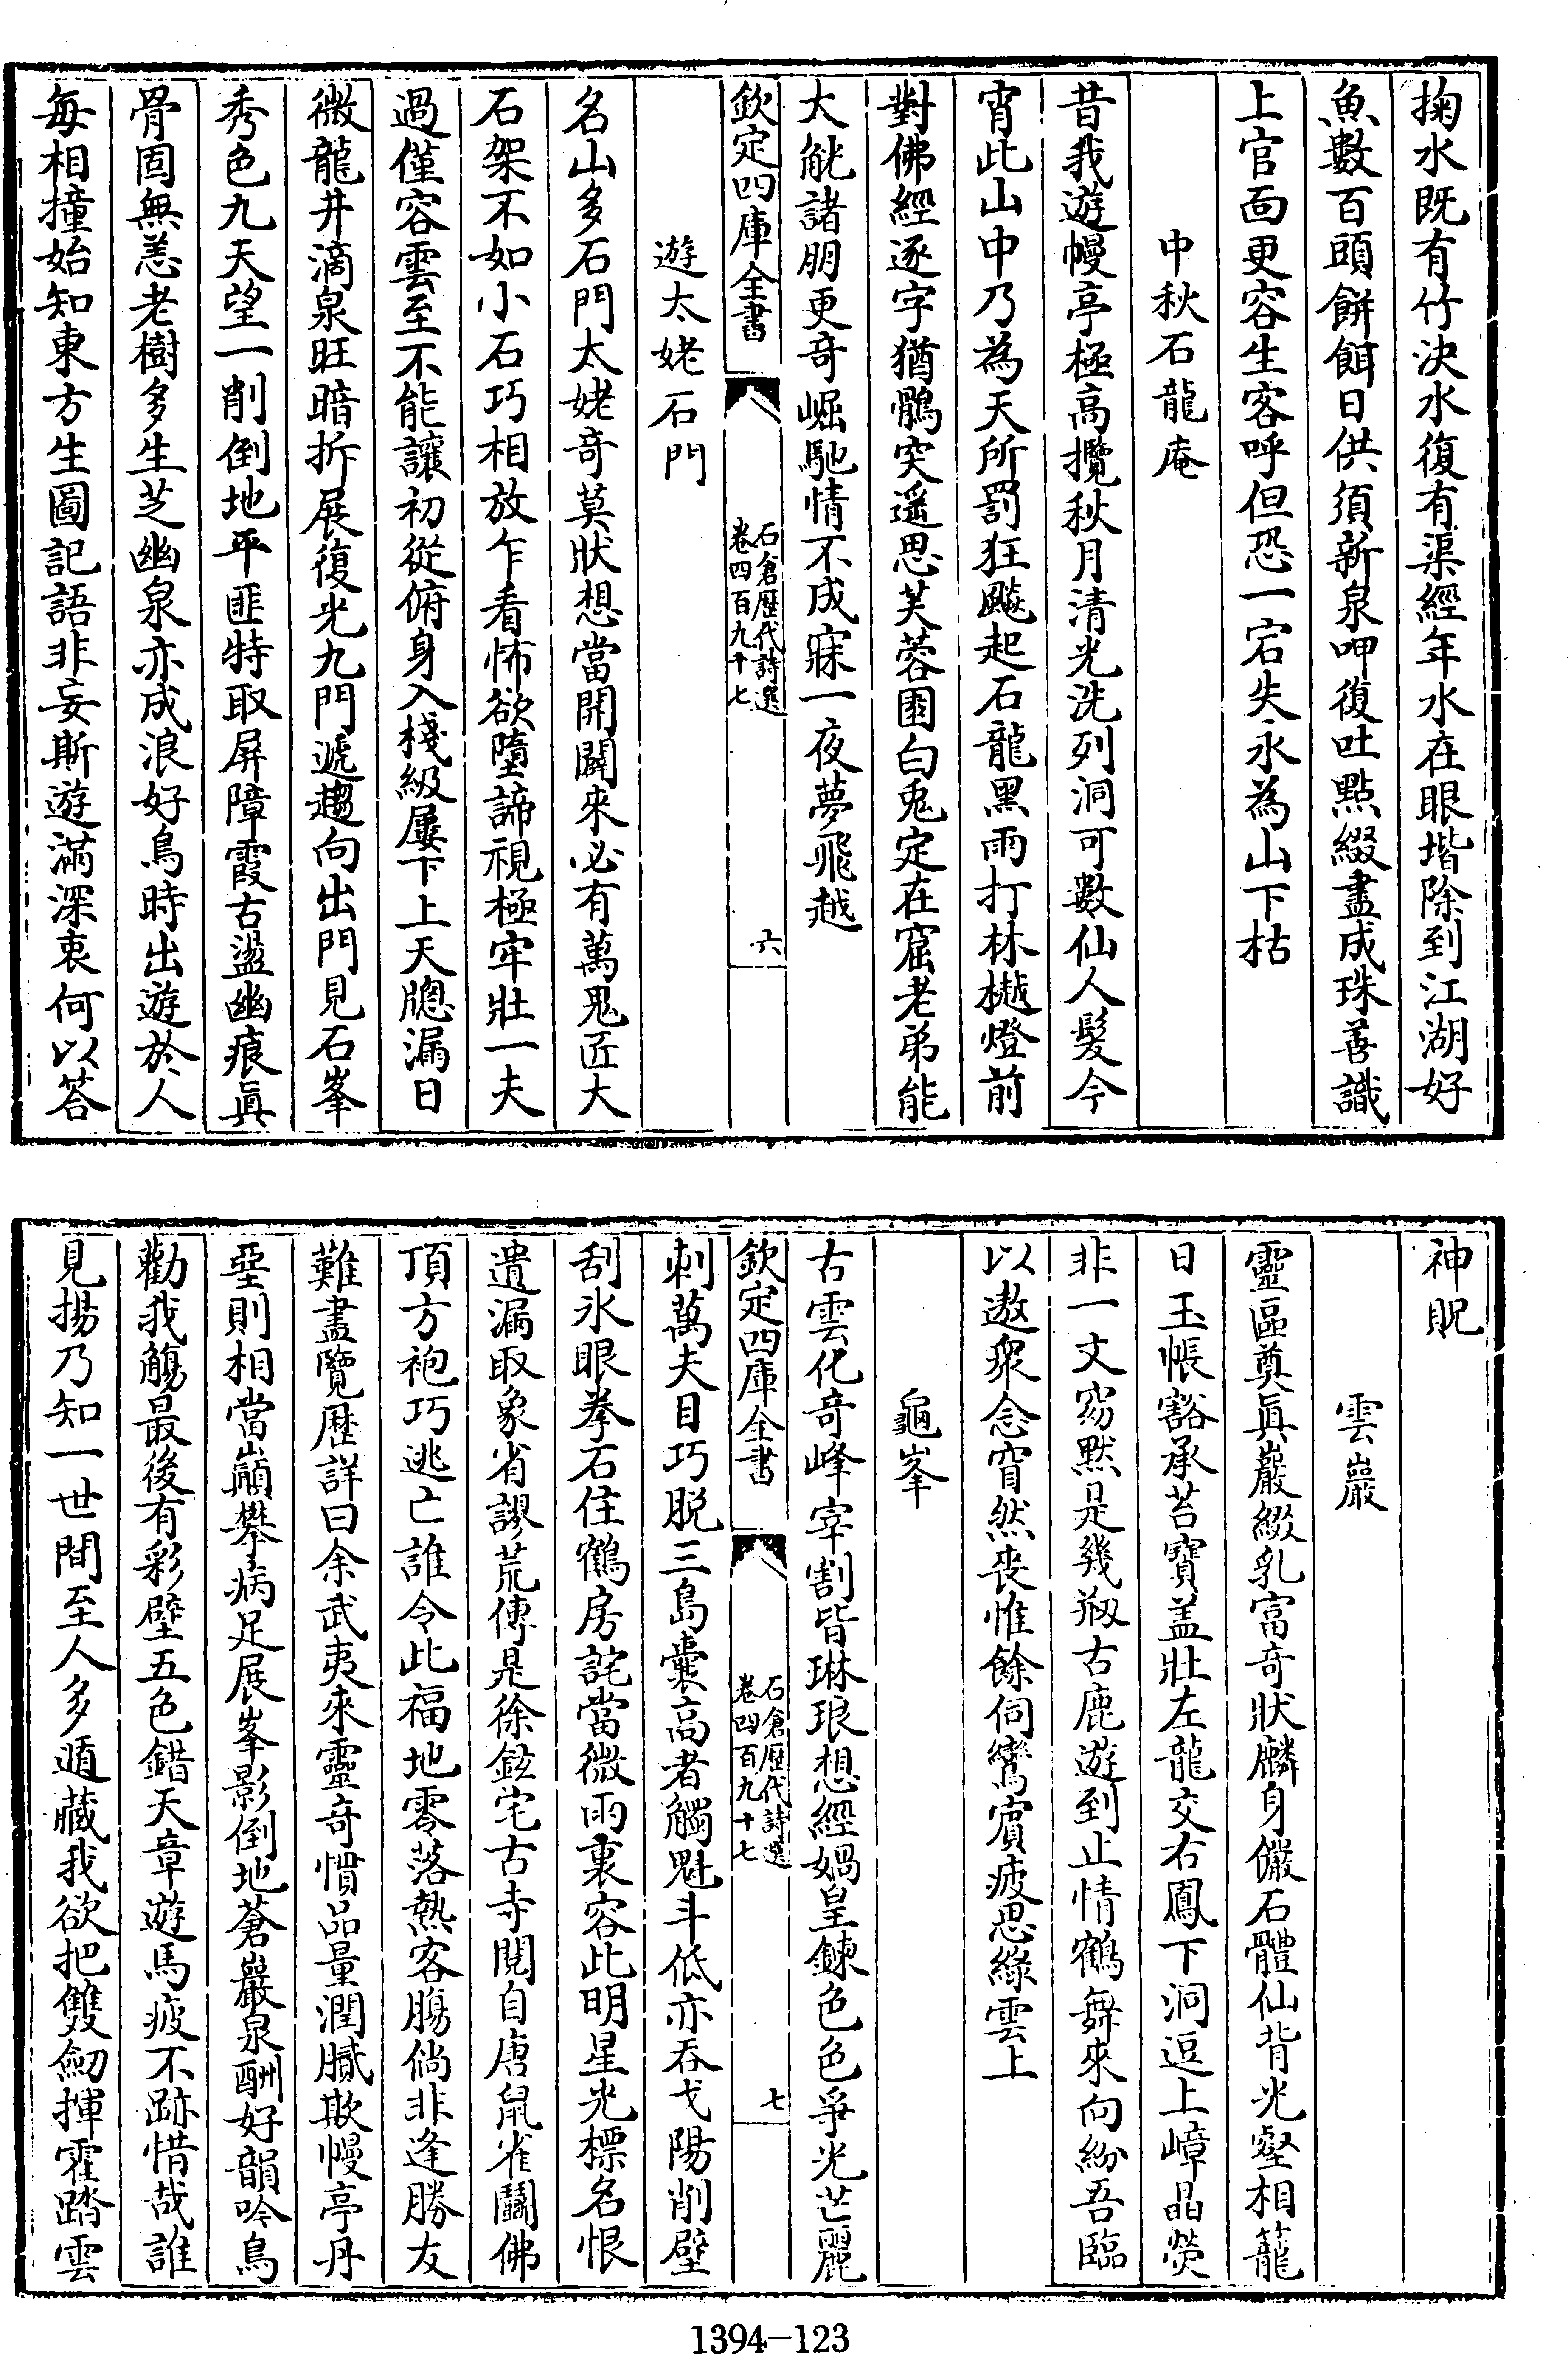 掬水既有竹決水復有渠經年水在眼堦除到江湖好
魚數百頭餅餌日供須新泉呷復吐點綴盡成珠善識
上官面更容生客呼但恐一宕失永為山下枯
中秋石龍庵
昔我遊幔亭極高攬秋月清光洗列洞可數仙人髮今
宵此山中乃為天所罰狂飈起石龍黑雨打林樾燈前
對佛經逐字猶鶻突遥思芙蓉園白兎定在窟老弟能
大觥諸朋更奇崛馳情不成寐一夜夢飛越
欽定四庫全書
石倉歷代詩選
卷四百九十七
六
遊太姥石門
名山多石門太姥奇莫狀想當開闢來必有萬鬼匠大
石架不如小石巧相放乍看怖欲墮諦視極牢壯一夫
過僅容雲至不能讓初從俯身入棧級屢下上天牕漏日
微龍井滴泉旺暗折展復光九門遞趨向出門見石峯
秀色九天望一削倒地平匪特取屏障霞古盪幽痕眞
骨固無恙老樹多生芝幽泉亦成浪好鳥時出遊於人
毎相撞始知東方生圖記語非妄斯遊滿深衷何以答
神貺
雲巖
靈區奠眞巖綴乳富奇狀麟身儼石體仙背光壑相籠
日玉帳豁承苔寶盖壯左龍交右鳳下洞逗上嶂晶熒
非一丈窈黙是幾刱古鹿遊到止情鶴舞來向紛吾臨
以遨衆念窅然喪惟餘伺鸞賔疲思緑雲上
龜峯
古雲化奇峰宰割皆琳琅想經媧皇鍊色色爭光芒麗
欽定四庫全書
石倉歷代詩選
卷四百九十七
七
刺萬夫目巧脱三島囊高者觸魁斗低亦吞戈陽削壁
刮氷眼拳石住鶴房詫當微雨裏容此明星光標名恨
遺漏取象省謬荒傳是徐鉉宅古寺閲自唐鼠雀鬭佛
頂方袍巧逃亡誰令此福地零落熱客膓倘非逢勝友
難盡覽歷詳曰余武夷來靈奇慣品量潤膩欺幔亭丹
堊則相當巔攀病足展峯影倒地蒼巖泉酬好韻吟鳥
勸我觴最後有彩壁五色錯天章遊馬疲不跡惜哉誰
見揚乃知一世間至人多遁藏我欲把雙劒揮霍踏雲
1394-123